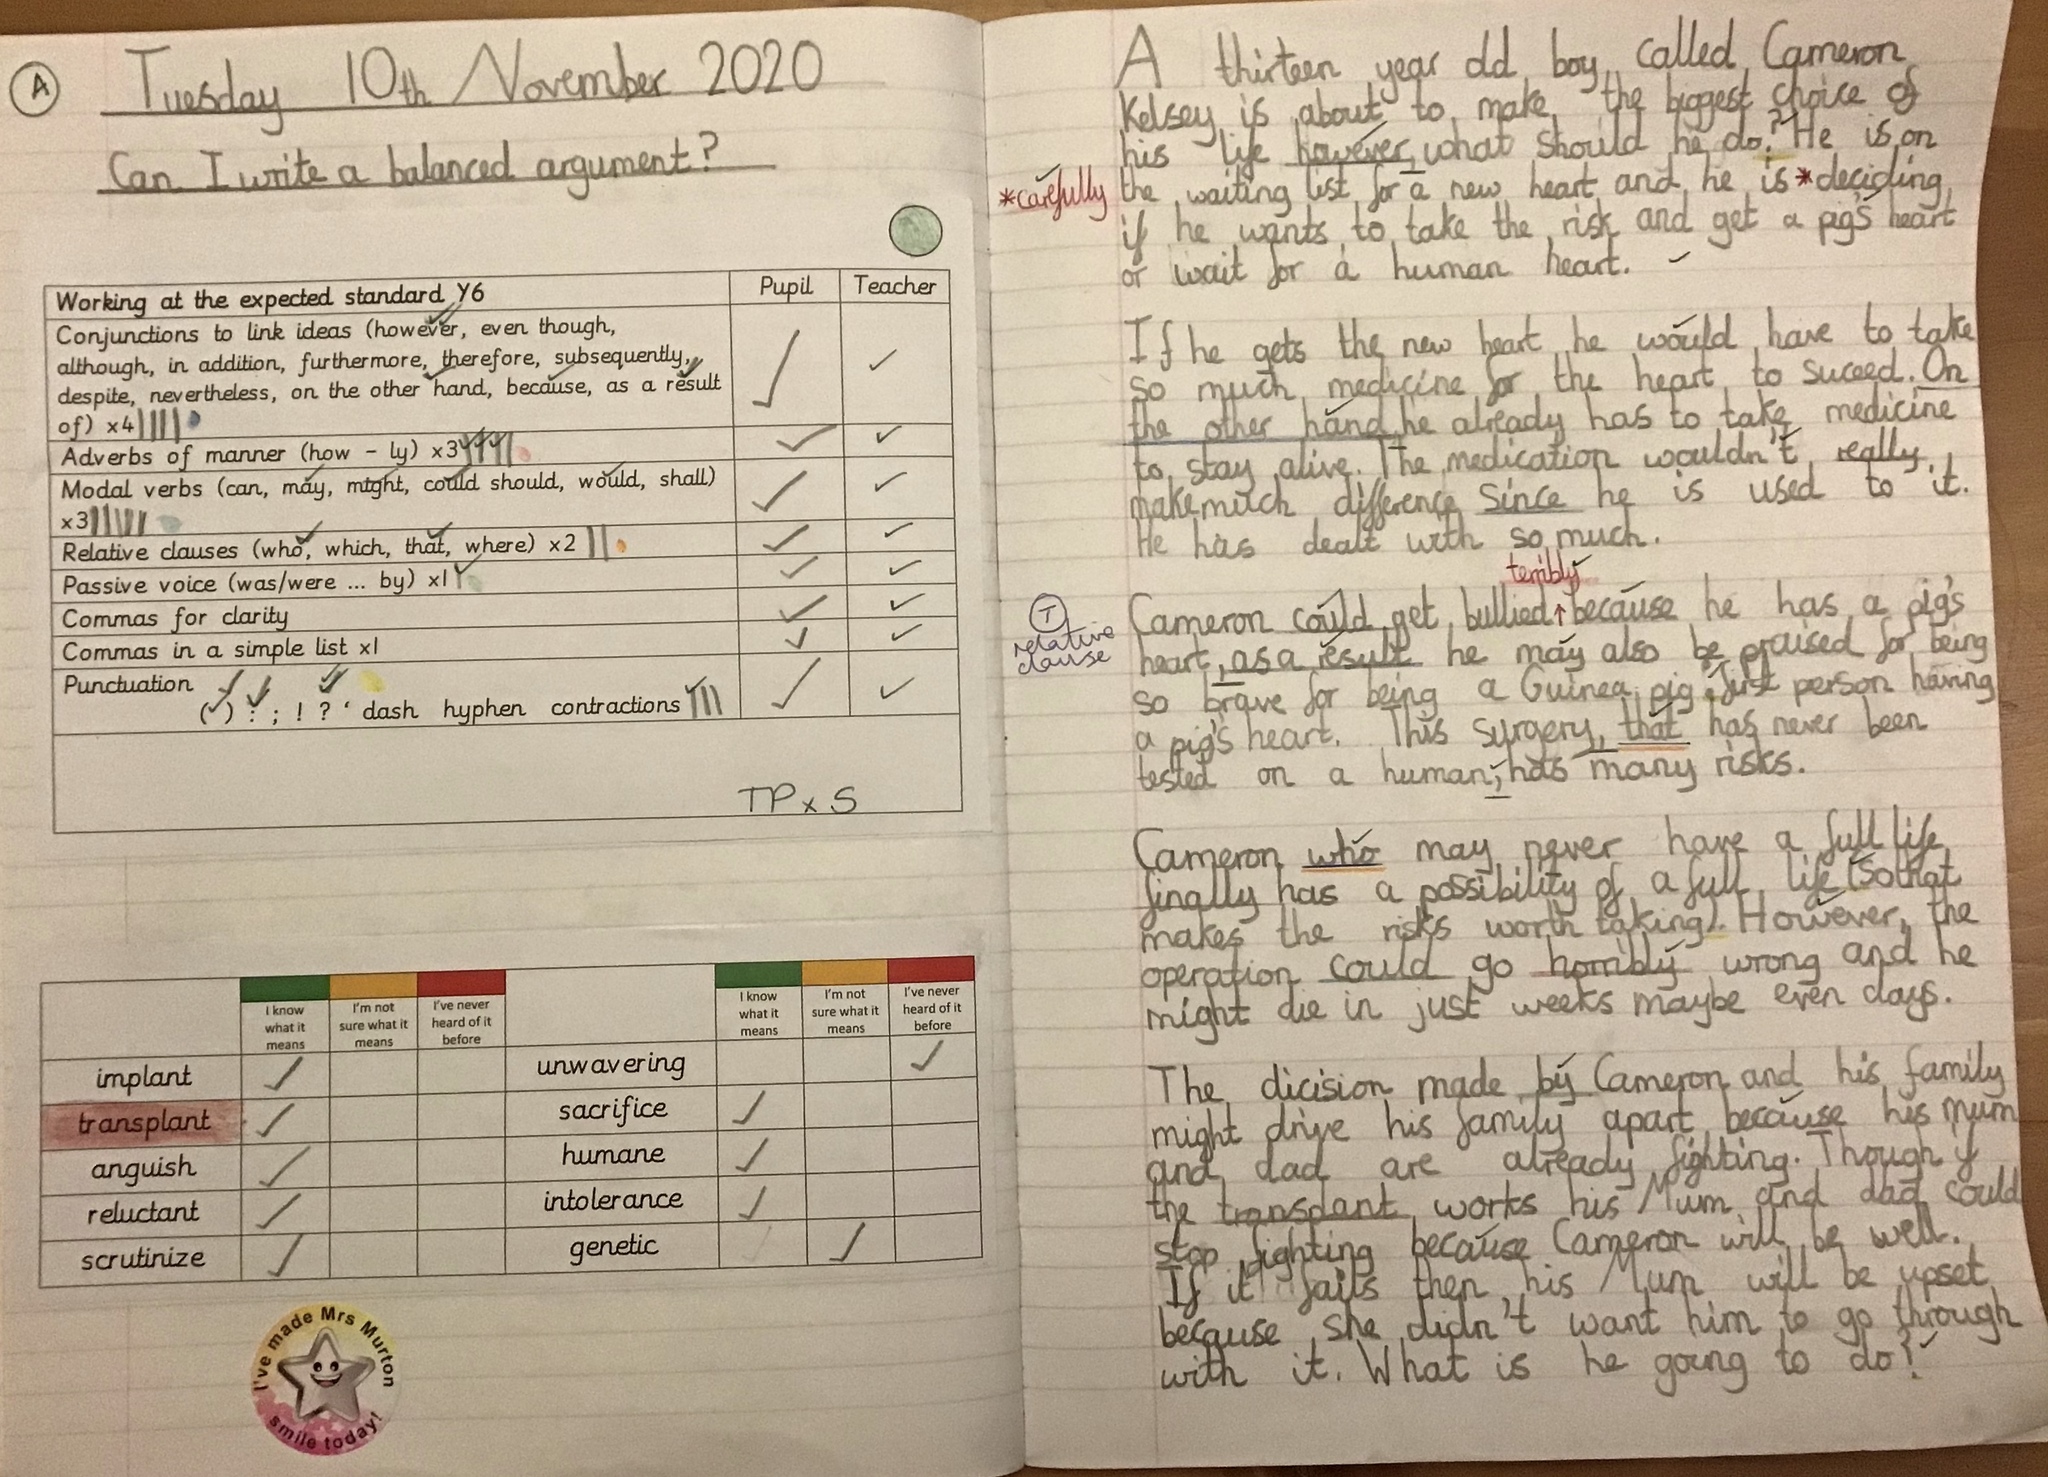 A
Tuesday 10th November 2020
Can I write a balanced argument?
Working at the expected standard Y6 Pupil Teacher
Conjunctions to link ideas (however, even though,
although, in addition, furthermore, therefore, subsequently,
despite, nevertheless, on the other hand, because, as a result
of) x4
Adverbs of manner (how - ly) x3
Modal verbs (can, may, might, could should, would, shall)
x3
Relative clauses (who, which, that, where) x2
Passive voice (was/were ... by) x1
Commas for clarity
Commas in a simple list x1
Punctuation
( ) : ; ! ? ' dash hyphen contractions
TP x S
I know what it means
I'm not sure what it means
I've never heard of it before
I know what it means
I'm not sure what it means
I've never heard of it before
implant unwavering
transplant sacrifice
anguish humane
reluctant intolerance
scrutinize genetic
I've made Mrs Murton
smile today!
A thirteen year old boy called Cameron
Kelsey is about to make the biggest choice of
his life however, what should he do? He is on
*carefully the waiting list for a new heart and he is *deciding
if he wants to take the risk and get a pig's heart
or wait for a human heart.
If he gets the new heart he would have to take
so much medicine for the heart to suceed. On
the other hand he already has to take medicine
to stay alive. The medication wouldn't really
make much difference since he is used to it.
He has dealt with so much.
terribly
T Cameron could get bullied ↑ because he has a pig's
relative clause heart, as a result he may also be praised for being
so brave for being a Guinea pig: fust person having
a pig's heart. This surgery, that has never been
tested on a human, has many risks.
Cameron who may never have a full life
finally has a possibility of a full life (so that
makes the risks worth taking). However, the
operation could go horribly wrong and he
might die in just weeks maybe even days.
The dicision made by Cameron and his family
might drive his family apart because his mum
and dad are already fighting. Though if
the transplant works his Mum and dad could
stop fighting because Cameron will be well.
If it fails then his Mum will be upset
because she didn't want him to go through
with it. What is he going to do?